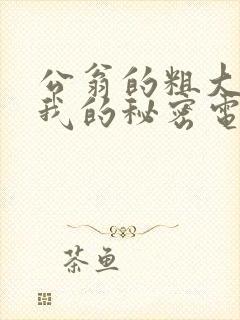 公翁的粗大
我的秘密电
茶鱼